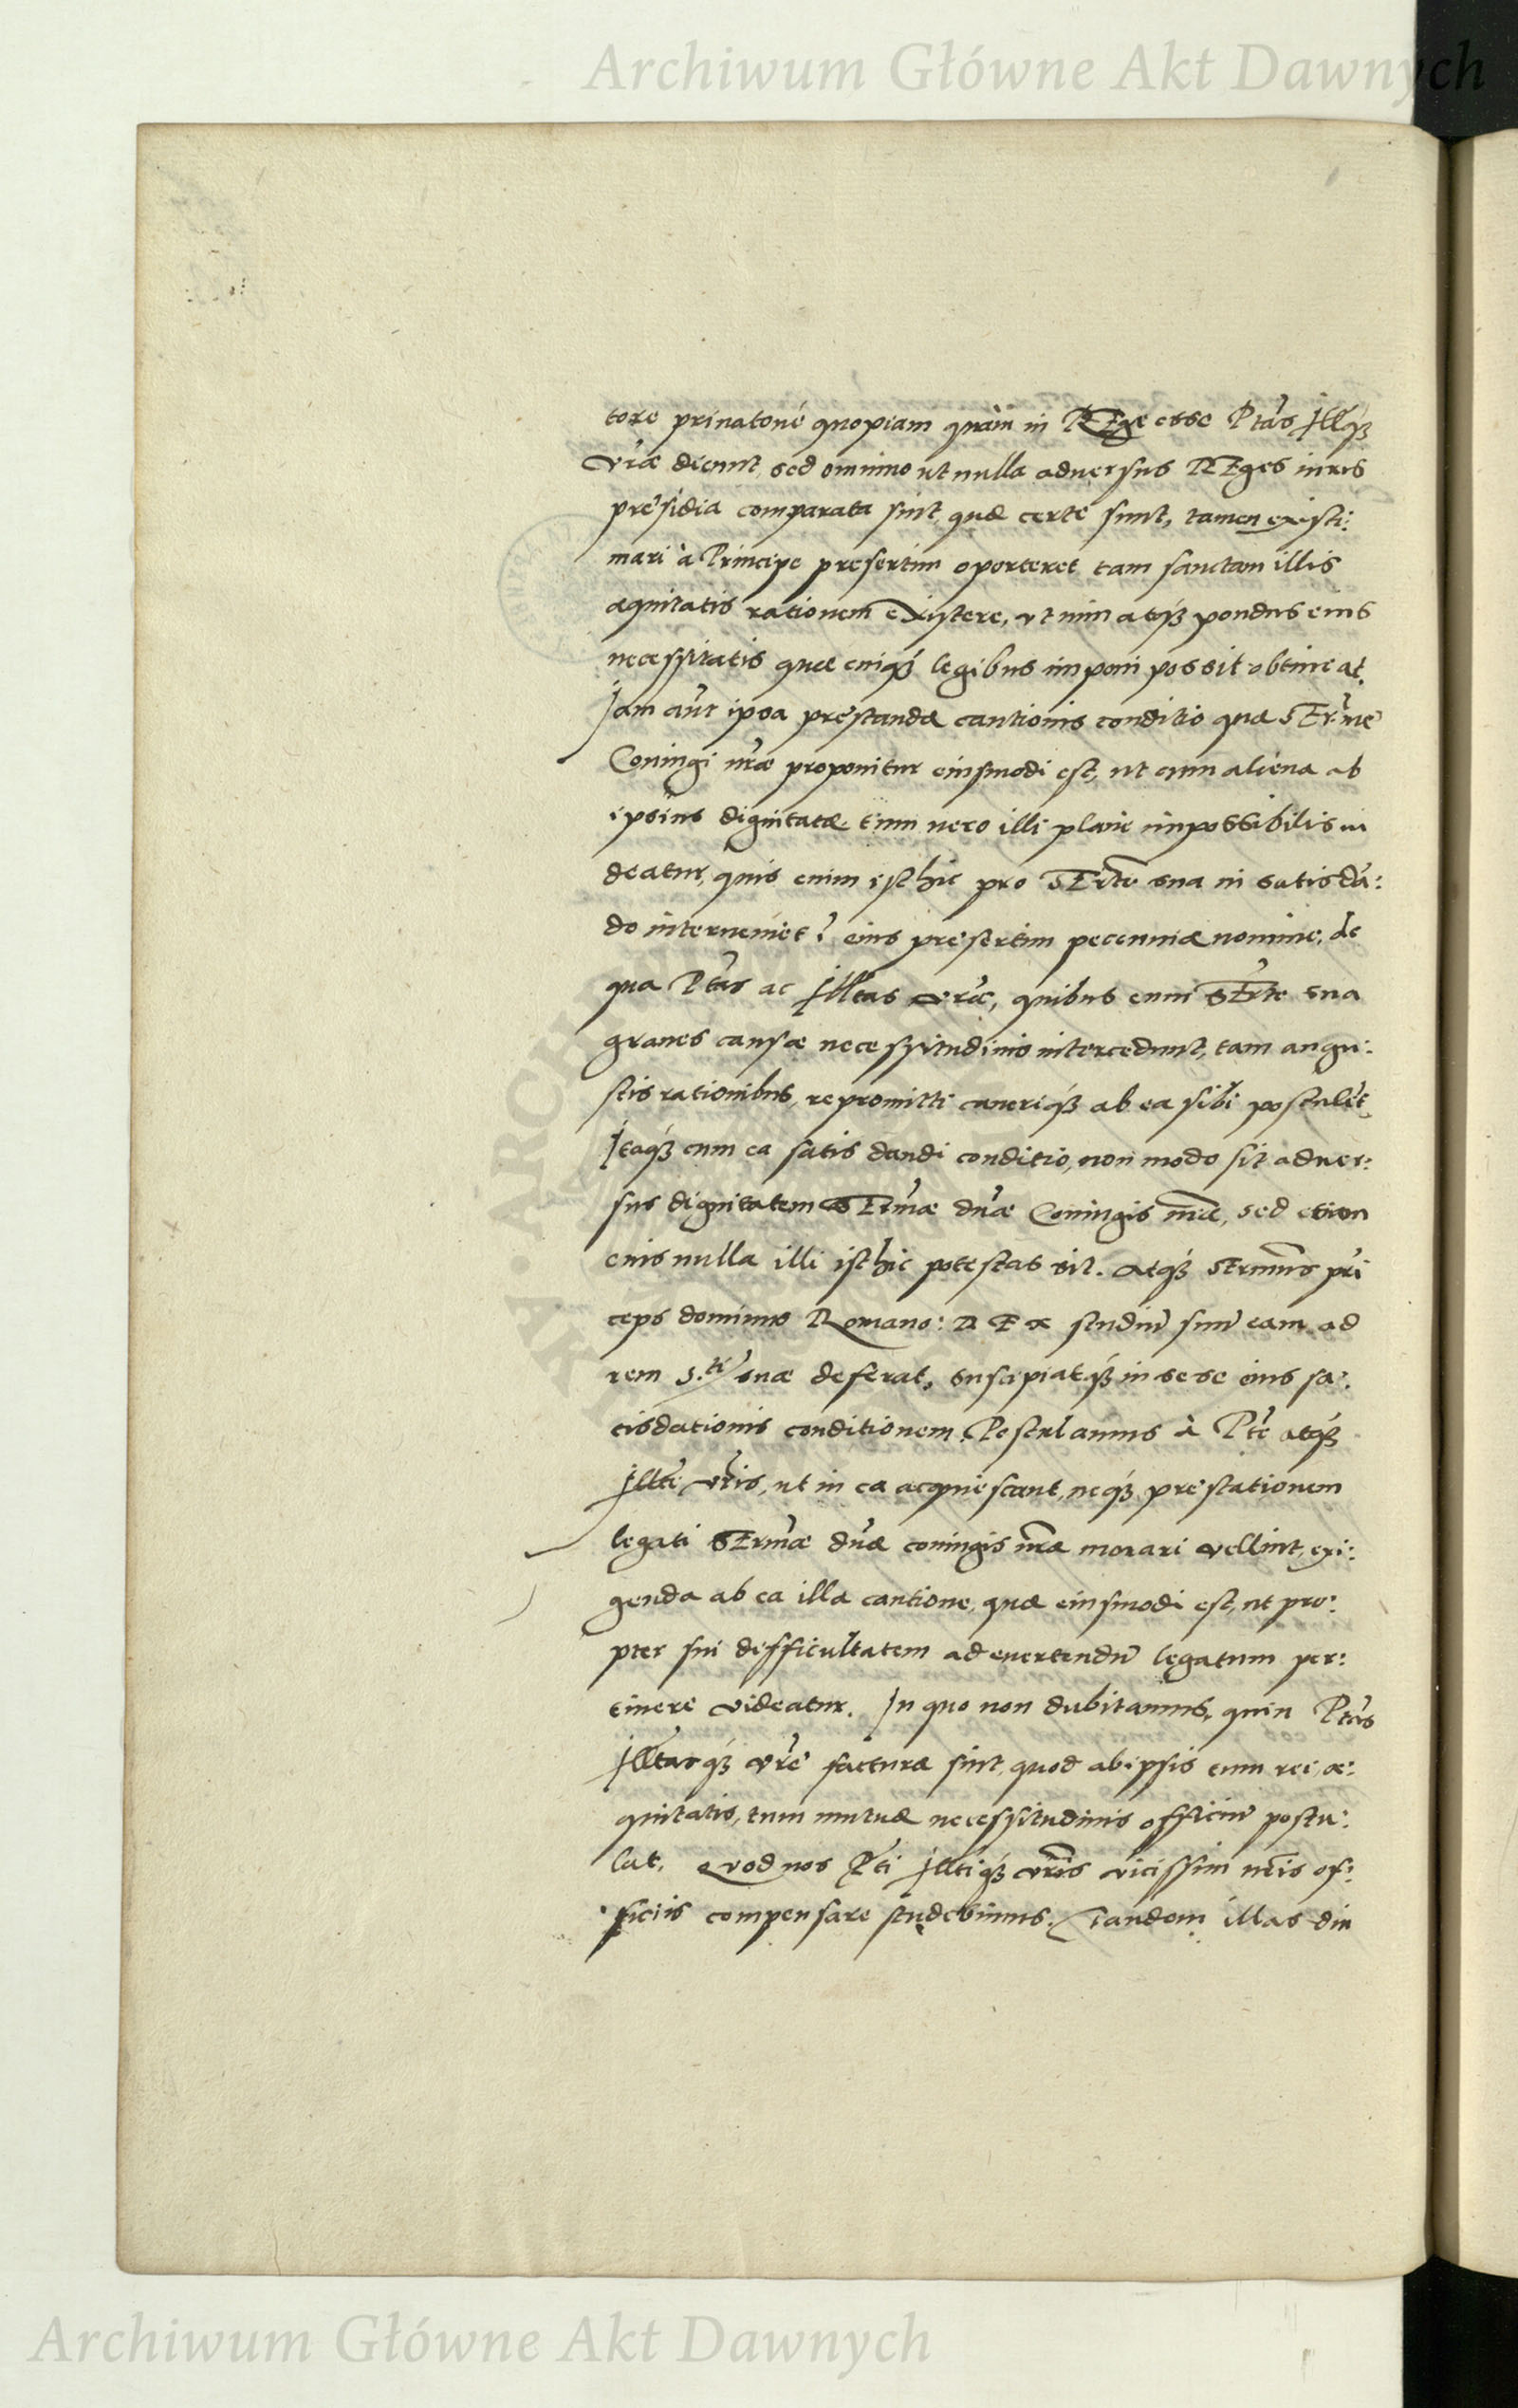 Archiwum Główne Akt Dawnych
tore priuatoué quopiam quàm in REge esse Ptãs Jllq́ꝫ
vrãe dicunt, sed omnino ut nulla aduersus REges iuris
presidia comparata sint, quæ certe sunt, tamen existi:
mari à Principe presertim oporteret tam sanctam illis
æquitatis rationem existere, vt uim atq́ꝫ pondus eius
necessitatis quæ cuiq́ꝫ legibus imponi possit obtineat.
Jam aũt ipsa prestandæ cautionis conditio quæ SEr:mẽ
Coniugi nr̃æ proponitur eiusmodi est, ut cum aliena ab
ipsius dignitatæ. tum uero illi plane impossibilis ui
deatur, quis enim isthic pro SErte sua in satisdã:
do interueniet? eius presertim pecuniæ nomine, de
qua Ptãs ac Jlltas vrãe, quibus cum SErte sua
graues causæ necessitudinis intercedunt, tam angu:
stis rationibus, repromitti caueriq́ꝫ ab ea sibi postulet,
Jtaq́ꝫ cum ea satis dandi conditio, non modo sit aduer:
sus dignitatem SErmæ dnæ Coniugis nrãe, sed etiam
cuis nulla illi isthic potestas sit. Atq́ꝫ SErmus prĩ
ceps dominus Romano: REx studiũ suũ eam ad
rem S.ti suæ deferat, suscipiatq́ꝫ in sese eius sa:
tisdationis conditionem. Postulamus à Pte atq́ꝫ
Jllte vrĩs, ut in ea acquiescant, neq́ꝫ prestationem
legati SErmæ dnæ coniugis nrãe morari vellint, exi:
genda ab ea illa cautione, quæ eiusmodi est, ut pro:
pter sui difficultatem ad euertendũ legatum per:
tinere videatur. Jn quo non dubitamus, quin Ptãs
Jlltasq́ꝫ vrẽ facturæ sint, quod ab ipsis cum rei æ:
quitatis, tum mutuæ necessitudinis officiũ postu:
lat. Quod nos Pti Jlltiq́ꝫ vrĩs vicissim nrĩs of:
ficiis compensare studebimus. Tandem illas diu
Archiwum Główne Akt Dawnych